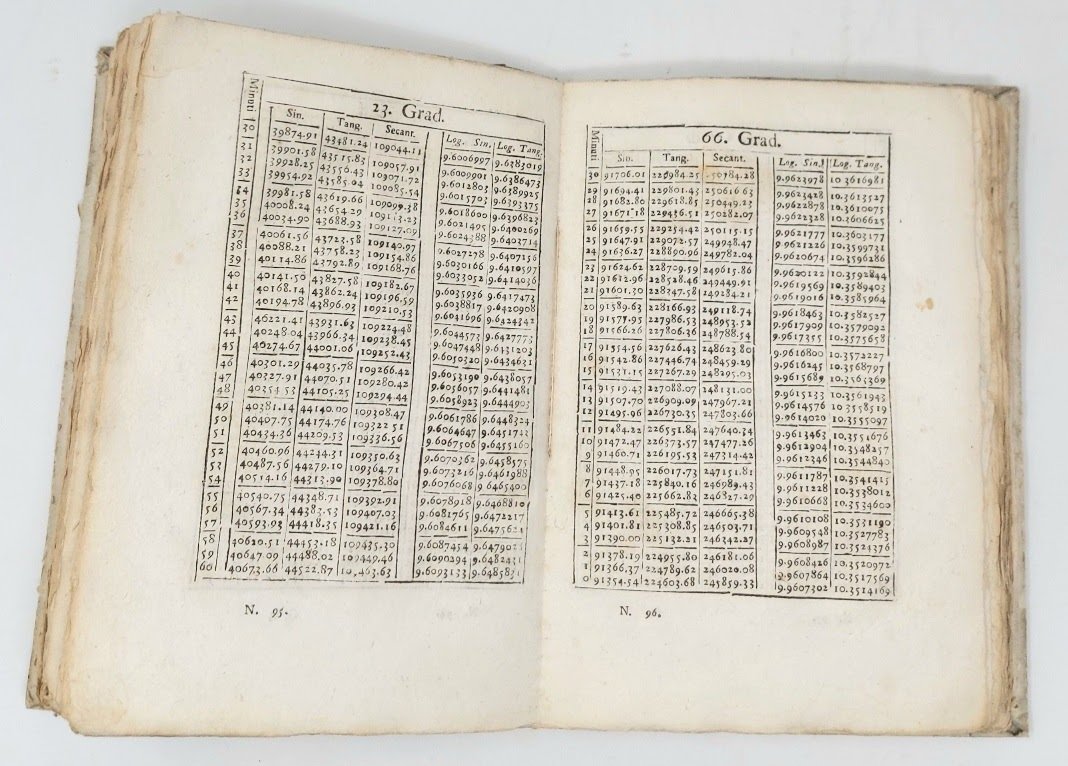 23. Grad.
Minuti Sin. Tang. Secant. Log. Sin. Log. Tang.
30 39874.91 43481.24 109044.11 9.6006997 9.6383019
31 39901.58 43515.83 109057.91 9.6009901 9.6386473
32 39928.25 43550.43 109071.72 9.6012803 9.6389925
33 39954.92 43585.04 109085.54 9.6015703 9.6393375
34 39981.58 43619.66 109099.38 9.6018600 9.6396823
35 40008.24 43654.29 109113.23 9.6021495 9.6400269
36 40034.90 43688.93 109127.09 9.6024388 9.6403714
37 40061.56 43723.58 109140.97 9.6027278 9.6407156
38 40088.21 43758.23 109154.86 9.6030166 9.6410597
39 40114.86 43792.89 109168.76 9.6033052 9.6414036
40 40141.50 43827.58 109182.67 9.6035936 9.6417473
41 40168.14 43862.24 109196.59 9.6038817 9.6420908
42 40194.78 43896.93 109210.53 9.6041696 9.6424342
43 40221.41 43931.63 109224.48 9.6044573 9.6427773
44 40248.04 43966.34 109238.45 9.6047448 9.6431203
45 40274.67 44001.06 109252.43 9.6050320 9.6434631
46 40301.29 44035.78 109266.42 9.6053190 9.6438057
47 40327.91 44070.51 109280.42 9.6056057 9.6441481
48 40354.53 44105.25 109294.44 9.6058923 9.6444903
49 40381.14 44140.00 109308.47 9.6061786 9.6448324
50 40407.75 44174.76 109322.51 9.6064647 9.6451743
51 40434.36 44209.53 109336.56 9.6067506 9.6455160
52 40460.96 44244.31 109350.63 9.6070362 9.6458575
53 40487.56 44279.10 109364.71 9.6073216 9.6461988
54 40514.16 44313.90 109378.80 9.6076068 9.6465400
55 40540.75 44348.71 109392.91 9.6078918 9.6468810
56 40567.34 44383.53 109407.03 9.6081765 9.6472217
57 40593.93 44418.35 109421.16 9.6084611 9.6475624
58 40620.51 44453.18 109435.30 9.6087454 9.6479028
59 40647.09 44488.02 109449.46 9.6090294 9.6482431
60 40673.66 44522.87 109463.63 9.6093133 9.6485831
N. 95.
66. Grad.
Minuti Sin. Tang. Secant. Log. Sin. Log. Tang.
30 91706.01 229984.25 250784.28 9.9623978 10.3616981
29 91694.41 229801.43 250616.63 9.9623428 10.3613527
28 91682.80 229618.85 250449.23 9.9622878 10.3610075
27 91671.18 229436.51 250282.07 9.9622328 10.3606625
26 91659.55 229254.42 250115.15 9.9621777 10.3603177
25 91647.91 229072.57 249948.47 9.9621226 10.3599731
24 91636.27 228890.96 249782.04 9.9620674 10.3596286
23 91624.62 228709.59 249615.86 9.9620122 10.3592844
22 91612.96 228528.46 249449.91 9.9619569 10.3589403
21 91601.30 228347.58 249284.21 9.9619016 10.3585964
20 91589.63 228166.93 249118.74 9.9618463 10.3582527
19 91577.95 227986.53 248953.52 9.9617909 10.3579092
18 91566.26 227806.36 248788.54 9.9617355 10.3575658
17 91554.56 227626.43 248623.80 9.9616800 10.3572227
16 91542.86 227446.74 248459.29 9.9616245 10.3568797
15 91531.15 227267.29 248295.03 9.9615689 10.3565369
14 91519.43 227088.07 248131.00 9.9615133 10.3561943
13 91507.70 226909.09 247967.21 9.9614576 10.3558519
12 91495.96 226730.35 247803.66 9.9614020 10.3555097
11 91484.22 226551.84 247640.34 9.9613463 10.3551676
10 91472.47 226373.57 247477.26 9.9612904 10.3548257
9 91460.71 226195.53 247314.42 9.9612346 10.3544840
8 91448.95 226017.73 247151.81 9.9611787 10.3541415
7 91437.18 225840.16 246989.43 9.9611228 10.3538012
6 91425.40 225662.83 246827.29 9.9610668 10.3534600
5 91413.61 225485.72 246665.38 9.9610108 10.3531190
4 91401.81 225308.85 246503.71 9.9609548 10.3527783
3 91390.00 225132.21 246342.27 9.9608987 10.3524376
2 91378.19 224955.80 246181.06 9.9608426 10.3520972
1 91366.37 224789.62 246020.08 9.9607864 10.3517569
0 91354.54 224603.68 245859.33 9.9607302 10.3514169
N. 96.